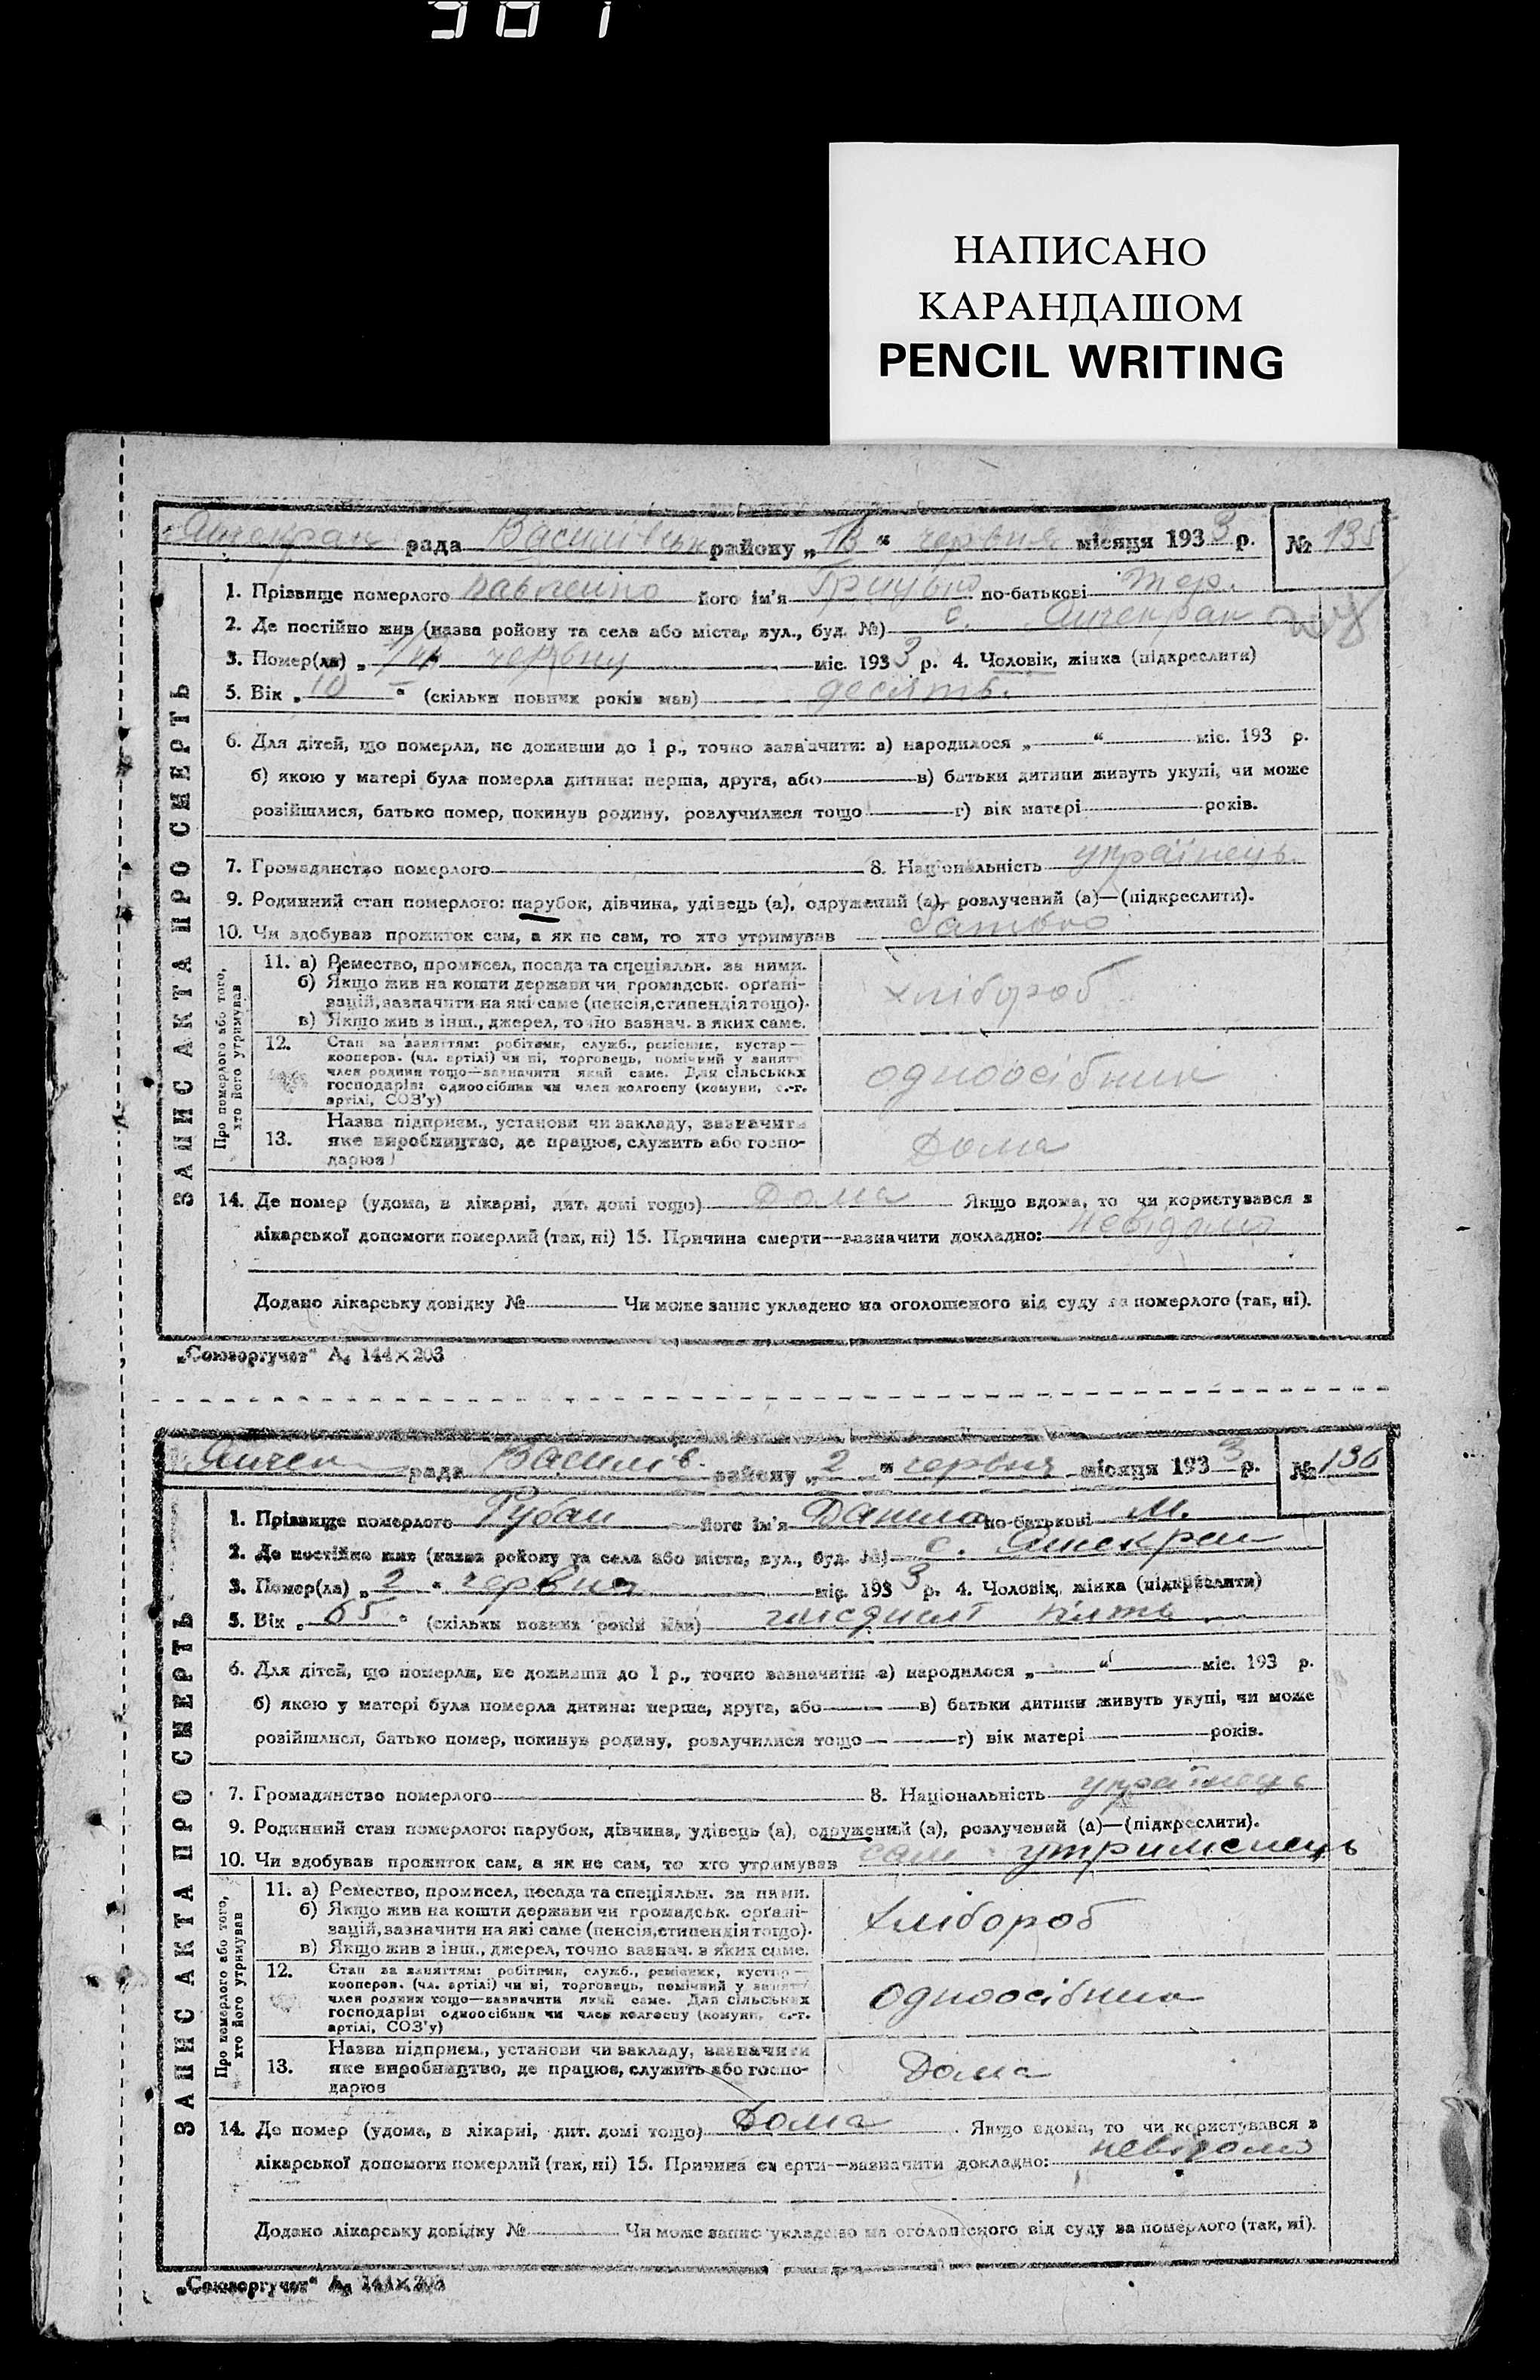 НАПИСАНО
КАРАНДАШОМ
PENCIL WRITING
Янчекрак рада Василівськ району „ 13 “ червня місяця 1933 р. № 135
ЗАПИС АКТА ПРО СМЕРТЬ
1. Прізвище померлого Павленко його ім'я Грицько по-батькові
2. Де постійно жив (назва району та села або міста, вул., буд. №) с. Янчекрак
3. Помер(ла) „ червня міс. 1933 р. 4. Чоловік, жінка (підкреслити)
5. Вік „ 10 “ (скільки повних років мав) десять.
6. Для дітей, що померли, не доживши до 1 р., точно зазначити: а) народилося „ “ міс. 193 р.
б) якою у матері була померла дитина: перша, друга, або в) батьки дитини живуть укупі, чи може
розійшлися, батько помер, покинув родину, розлучилися тощо г) вік матері років.
7. Громадянство померлого 8. Національність українець
9. Родинний стан померлого: парубок, дівчина, удівець (а), одружений (а), розлучений (а)—(підкреслити).
10. Чи здобував прожиток сам, а як не сам, то хто утримував батько
Про померлого або того, хто його утримував
11. а) Ремество, промисел, посада та спеціяльн. за ними.
б) Якщо жив на кошти держави чи громадськ. органі-
зацій, зазначити на які саме (пенсія, стипендія тощо).
в) Якщо жив з інш., джерел, точно зазнач. з яких саме.
хлібороб
12. Стан за заняттям: робітник, служб., ремісник, кустар—
кооперов. (чл. артілі) чи ні, торговець, помічний у занятт
член родини тощо—зазначити який саме. Для сільських
господарів: одноосібник чи член колгоспу (комуни, с.-г.
артілі, СОЗ'у)
одноосібник
13. Назва підприєм., установи чи закладу, зазначити
яке виробництво, де працює, служить або госпо-
дарює
Дома
14. Де помер (удома, в лікарні, дит. домі тощо) Дома Якщо вдома, то чи користувався з
лікарської допомоги померлий (так, ні) 15. Причина смерти—зазначити докладно: невідома
Додано лікарську довідку № Чи може запис укладено на оголошеного від суду за померлого (так, ні).
„Союзоргучет“ А₆ 144×203
Янчек рада Василів. району „ 2 “ червня місяця 1933 р. № 136
ЗАПИС АКТА ПРО СМЕРТЬ
1. Прізвище померлого Рубан його ім'я Данило по-батькові М.
2. Де постійно жив (назва району та села або міста, вул., буд. №) с. Янчекрак
3. Помер(ла) „ 2 “ червня міс. 1933 р. 4. Чоловік, жінка (підкреслити)
5. Вік „ 65 “ (скільки повних років мав) шісдисят пять
6. Для дітей, що померли, не доживши до 1 р., точно зазначити: а) народилося „ “ міс. 193 р.
б) якою у матері була померла дитина: перша, друга, або в) батьки дитини живуть укупі, чи може
розійшлися, батько помер, покинув родину, розлучилися тощо г) вік матері років.
7. Громадянство померлого 8. Національність українець
9. Родинний стан померлого: парубок, дівчина, удівець (а), одружений (а), розлучений (а)—(підкреслити).
10. Чи здобував прожиток сам, а як не сам, то хто утримував сам утрименець
Про померлого або того, хто його утримував
11. а) Ремество, промисел, посада та спеціяльн. за ними.
б) Якщо жив на кошти держави чи громадськ. органі-
зацій, зазначити на які саме (пенсія, стипендія тощо).
в) Якщо жив з інш., джерел, точно зазнач. з яких саме.
хлібороб
12. Стан за заняттям: робітник, служб., ремісник, кустар—
кооперов. (чл. артілі) чи ні, торговець, помічний у занятт
член родини тощо—зазначити який саме. Для сільських
господарів: одноосібник чи член колгоспу (комуни, с.-г.
артілі, СОЗ'у)
Одноосібник
13. Назва підприєм., установи чи закладу, зазначити
яке виробництво, де працює, служить або госпо-
дарює
Дома
14. Де помер (удома, в лікарні, дит. домі тощо) Дома Якщо вдома, то чи користувався з
лікарської допомоги померлий (так, ні) 15. Причина смерти—зазначити докладно: невідомо
Додано лікарську довідку № Чи може запис укладено на оголошеного від суду за померлого (так, ні).
„Союзоргучет“ А₆ 144×203